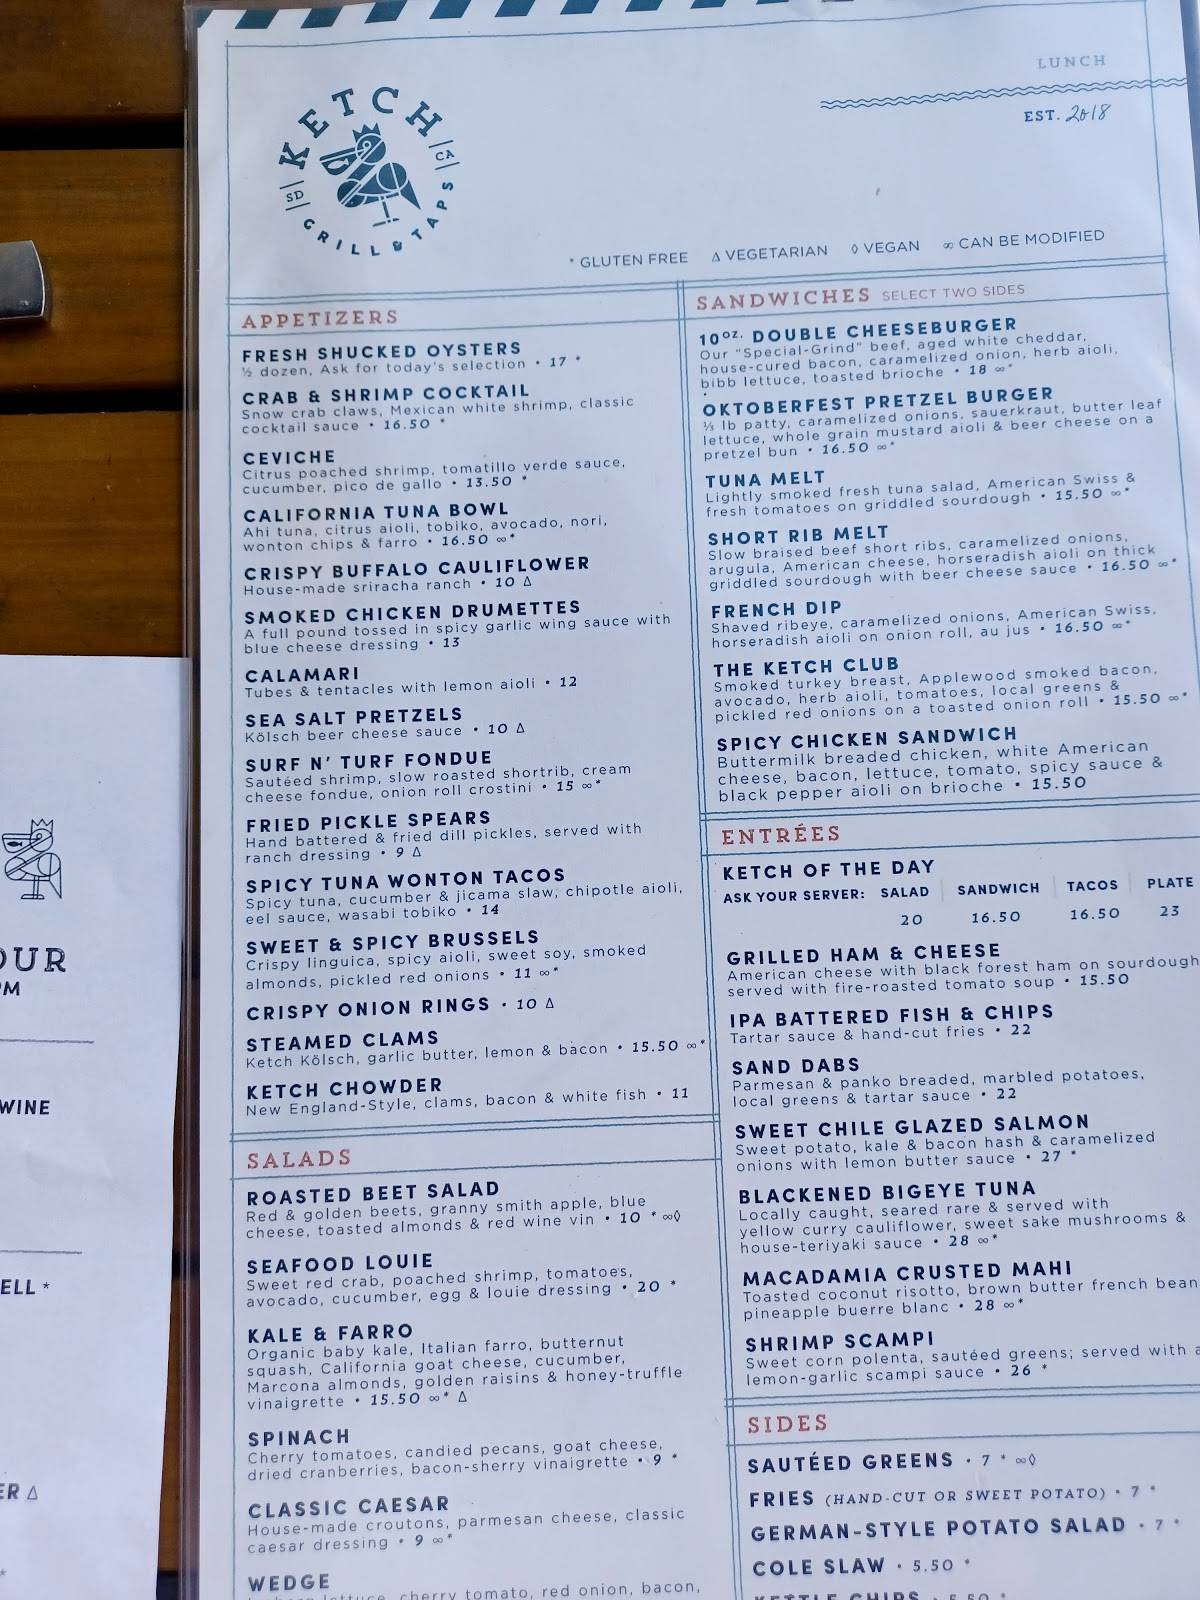 LUNCH
EST. 2018
KETCH
SD
CA
GRILL & TAPS
* GLUTEN FREE Δ VEGETARIAN ◊ VEGAN ∞ CAN BE MODIFIED
APPETIZERS
FRESH SHUCKED OYSTERS
½ dozen, Ask for today's selection • 17 *
CRAB & SHRIMP COCKTAIL
Snow crab claws, Mexican white shrimp, classic
cocktail sauce • 16.50 *
CEVICHE
Citrus poached shrimp, tomatillo verde sauce,
cucumber, pico de gallo • 13.50 *
CALIFORNIA TUNA BOWL
Ahi tuna, citrus aioli, tobiko, avocado, nori,
wonton chips & farro • 16.50 ∞*
CRISPY BUFFALO CAULIFLOWER
House-made sriracha ranch • 10 Δ
SMOKED CHICKEN DRUMETTES
A full pound tossed in spicy garlic wing sauce with
blue cheese dressing • 13
CALAMARI
Tubes & tentacles with lemon aioli • 12
SEA SALT PRETZELS
Kölsch beer cheese sauce • 10 Δ
SURF N' TURF FONDUE
Sautéed shrimp, slow roasted shortrib, cream
cheese fondue, onion roll crostini • 15 ∞*
FRIED PICKLE SPEARS
Hand battered & fried dill pickles, served with
ranch dressing • 9 Δ
SPICY TUNA WONTON TACOS
Spicy tuna, cucumber & jicama slaw, chipotle aioli,
eel sauce, wasabi tobiko • 14
SWEET & SPICY BRUSSELS
Crispy linguica, spicy aioli, sweet soy, smoked
almonds, pickled red onions • 11 ∞*
CRISPY ONION RINGS • 10 Δ
STEAMED CLAMS
Ketch Kölsch, garlic butter, lemon & bacon • 15.50 ∞*
KETCH CHOWDER
New England-Style, clams, bacon & white fish • 11
SALADS
ROASTED BEET SALAD
Red & golden beets, granny smith apple, blue
cheese, toasted almonds & red wine vin • 10 * ∞◊
SEAFOOD LOUIE
Sweet red crab, poached shrimp, tomatoes,
avocado, cucumber, egg & louie dressing • 20 *
KALE & FARRO
Organic baby kale, Italian farro, butternut
squash, California goat cheese, cucumber,
Marcona almonds, golden raisins & honey-truffle
vinaigrette • 15.50 ∞* Δ
SPINACH
Cherry tomatoes, candied pecans, goat cheese,
dried cranberries, bacon-sherry vinaigrette • 9 *
CLASSIC CAESAR
House-made croutons, parmesan cheese, classic
caesar dressing • 9 ∞*
WEDGE
lettuce, cherry tomato, red onion, bacon,
SANDWICHES SELECT TWO SIDES
10oz. DOUBLE CHEESEBURGER
Our "Special-Grind" beef, aged white cheddar,
house-cured bacon, caramelized onion, herb aioli,
bibb lettuce, toasted brioche • 18 ∞*
OKTOBERFEST PRETZEL BURGER
⅓ lb patty, caramelized onions, sauerkraut, butter leaf
lettuce, whole grain mustard aioli & beer cheese on a
pretzel bun • 16.50 ∞*
TUNA MELT
Lightly smoked fresh tuna salad, American Swiss &
fresh tomatoes on griddled sourdough • 15.50 ∞*
SHORT RIB MELT
Slow braised beef short ribs, caramelized onions,
arugula, American cheese, horseradish aioli on thick
griddled sourdough with beer cheese sauce • 16.50 ∞*
FRENCH DIP
Shaved ribeye, caramelized onions, American Swiss,
horseradish aioli on onion roll, au jus • 16.50 ∞*
THE KETCH CLUB
Smoked turkey breast, Applewood smoked bacon,
avocado, herb aioli, tomatoes, local greens &
pickled red onions on a toasted onion roll • 15.50 ∞*
SPICY CHICKEN SANDWICH
Buttermilk breaded chicken, white American
cheese, bacon, lettuce, tomato, spicy sauce &
black pepper aioli on brioche • 15.50
ENTRÉES
KETCH OF THE DAY
ASK YOUR SERVER: SALAD SANDWICH TACOS PLATE
20 16.50 16.50 23
GRILLED HAM & CHEESE
American cheese with black forest ham on sourdough
served with fire-roasted tomato soup • 15.50
IPA BATTERED FISH & CHIPS
Tartar sauce & hand-cut fries • 22
SAND DABS
Parmesan & panko breaded, marbled potatoes,
local greens & tartar sauce • 22
SWEET CHILE GLAZED SALMON
Sweet potato, kale & bacon hash & caramelized
onions with lemon butter sauce • 27 *
BLACKENED BIGEYE TUNA
Locally caught, seared rare & served with
yellow curry cauliflower, sweet sake mushrooms &
house-teriyaki sauce • 28 ∞*
MACADAMIA CRUSTED MAHI
Toasted coconut risotto, brown butter french bean
pineapple buerre blanc • 28 ∞*
SHRIMP SCAMPI
Sweet corn polenta, sautéed greens; served with a
lemon-garlic scampi sauce • 26 *
SIDES
SAUTÉED GREENS • 7 * ∞◊
FRIES (HAND-CUT OR SWEET POTATO) • 7 *
GERMAN-STYLE POTATO SALAD • 7 *
COLE SLAW • 5.50 *
KETTLE CHIPS • 5.50 *
OUR
PM
WINE
ELL *
ER Δ
*